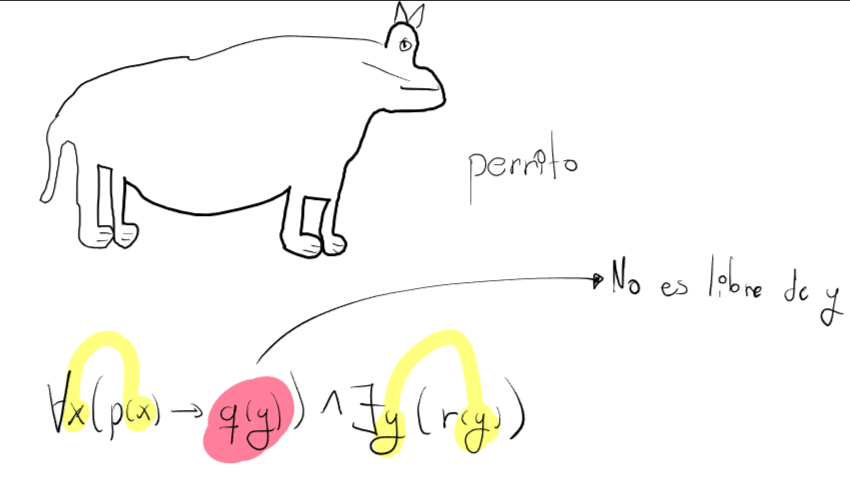 perrito
No es libre de y
∀x(p(x) → q(y)) ∧ ∃y(r(y))